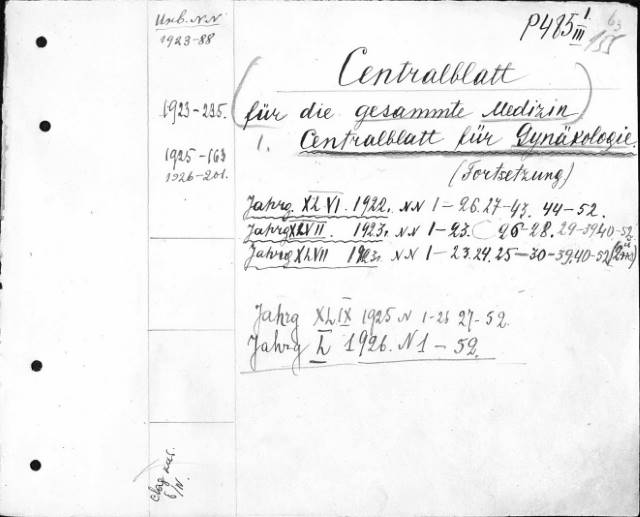 Инв. NN
1923-88
1923-235.
1925-163
1926-201.
P485 I/III
155
Centralblatt
(für die gesammte Medizin)
1. Centralblatt für Gynäkologie.
(Fortsetzung)
Jahrg. XLVI. 1922. NN 1-26. 27-43. 44-52.
Jahrg XLVII. 1923. NN 1-23. 26-28. 29-39 40-52
Jahrg XLVII 1923. NN 1-23. 24. 25-30-39. 40-52
Jahrg XLIX 1925 N 1-26 27-52.
Jahrg L 1926. N 1-52.